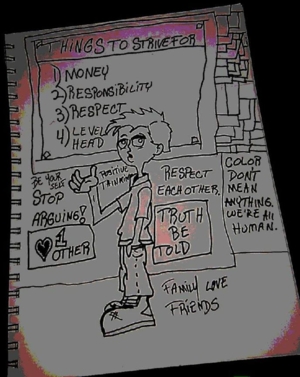 THINGS TO STRIVE FOR
1) MONEY
2) RESPONSIBILITY
3) RESPECT
4) LEVEL
HEAD
BE YOUR
SELF
STOP
ARGUING!
♥ 1
OTHER
POSITIVE
THINKING
RESPECT
EACH OTHER.
TRUTH
BE
TOLD
FAMILY LOVE
FRIENDS
COLOR
DONT
MEAN
ANYTHING.
WE'RE All
HUMAN.